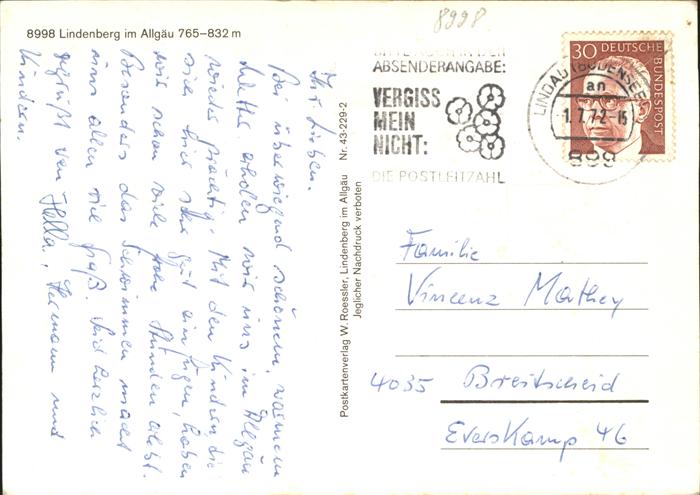 8998 Lindenberg im Allgäu 765–832 m
8998
Ihr Lieben.
Bei überwiegend schönem, warmem
Wetter erholen wir uns im Allgäu
wieder prächtig. Mit den Kindern, die
sich hier sehr gut einfügen, haben
wir schon viele frohe Stunden erlebt.
Besonders das Schwimmen macht
uns allen viel Spaß. Seid herzlich
gegrüßt von Hella, Hermann und
Kindern.
Postkartenverlag W. Roessler, Lindenberg im Allgäu Nr. 43-229-2
Jeglicher Nachdruck verboten
ABSENDERANGABE:
VERGISS
MEIN
NICHT:
DIE POSTLEITZAHL
LINDAU (BODENSEE)
an
-1.7.72-15
899
30 DEUTSCHE
BUNDESPOST
Familie
Vincenz Mathey
4035 Breitscheid
Everskamp 46